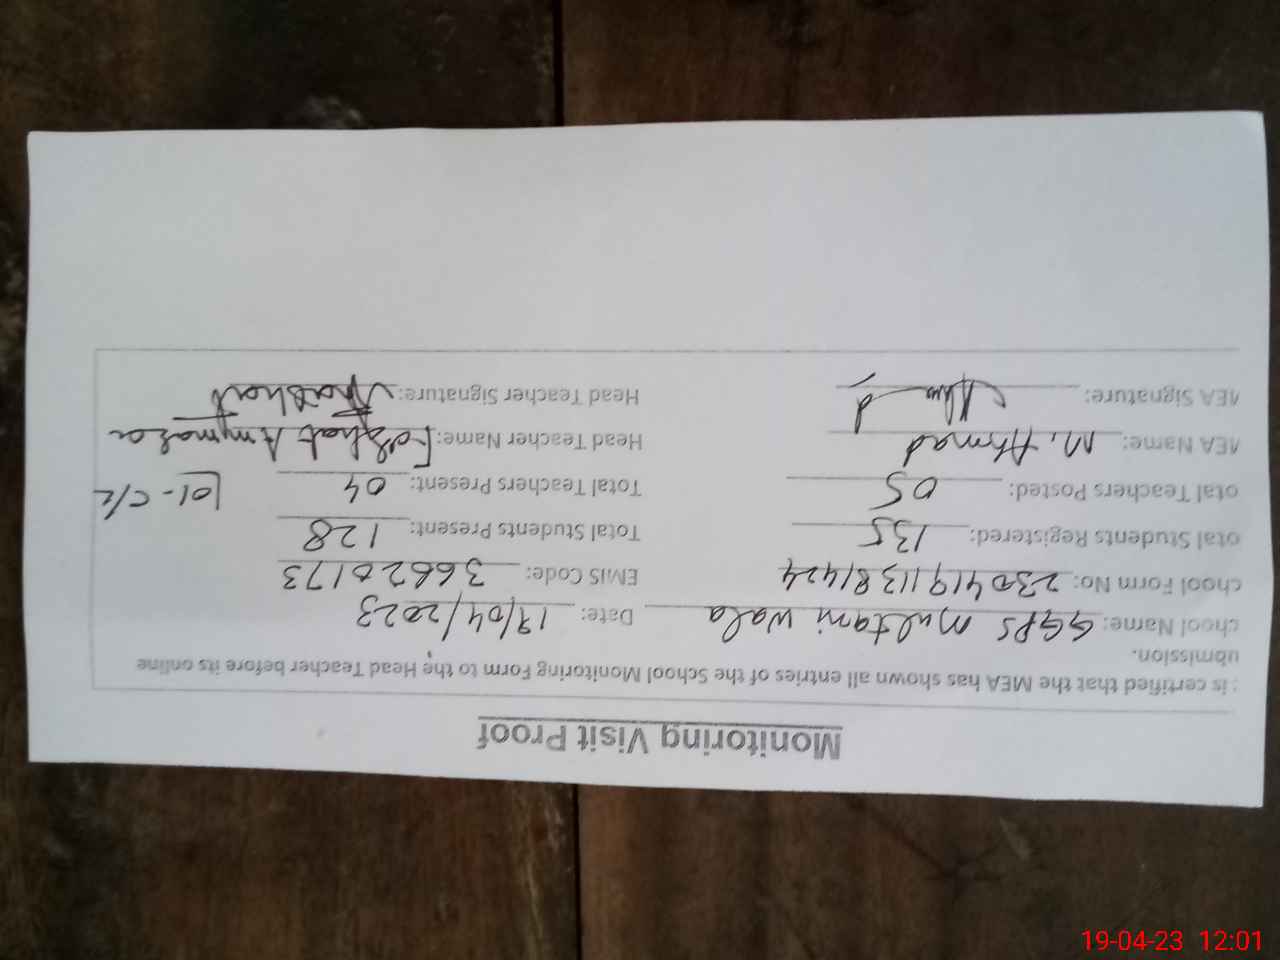 Monitoring Visit Proof
: is certified that the MEA has shown all entries of the School Monitoring Form to the Head Teacher before its online
ubmission.
chool Name: GGPS Multani Wala Date: 19/04/2023
chool Form No: 23041911381424 EMIS Code: 36620173
otal Students Registered: 135 Total Students Present: 128
otal Teachers Posted: 05 Total Teachers Present: 04 01-C/L
MEA Name: M. Ahmad Head Teacher Name:
MEA Signature: Head Teacher Signature:
19-04-23 12:01